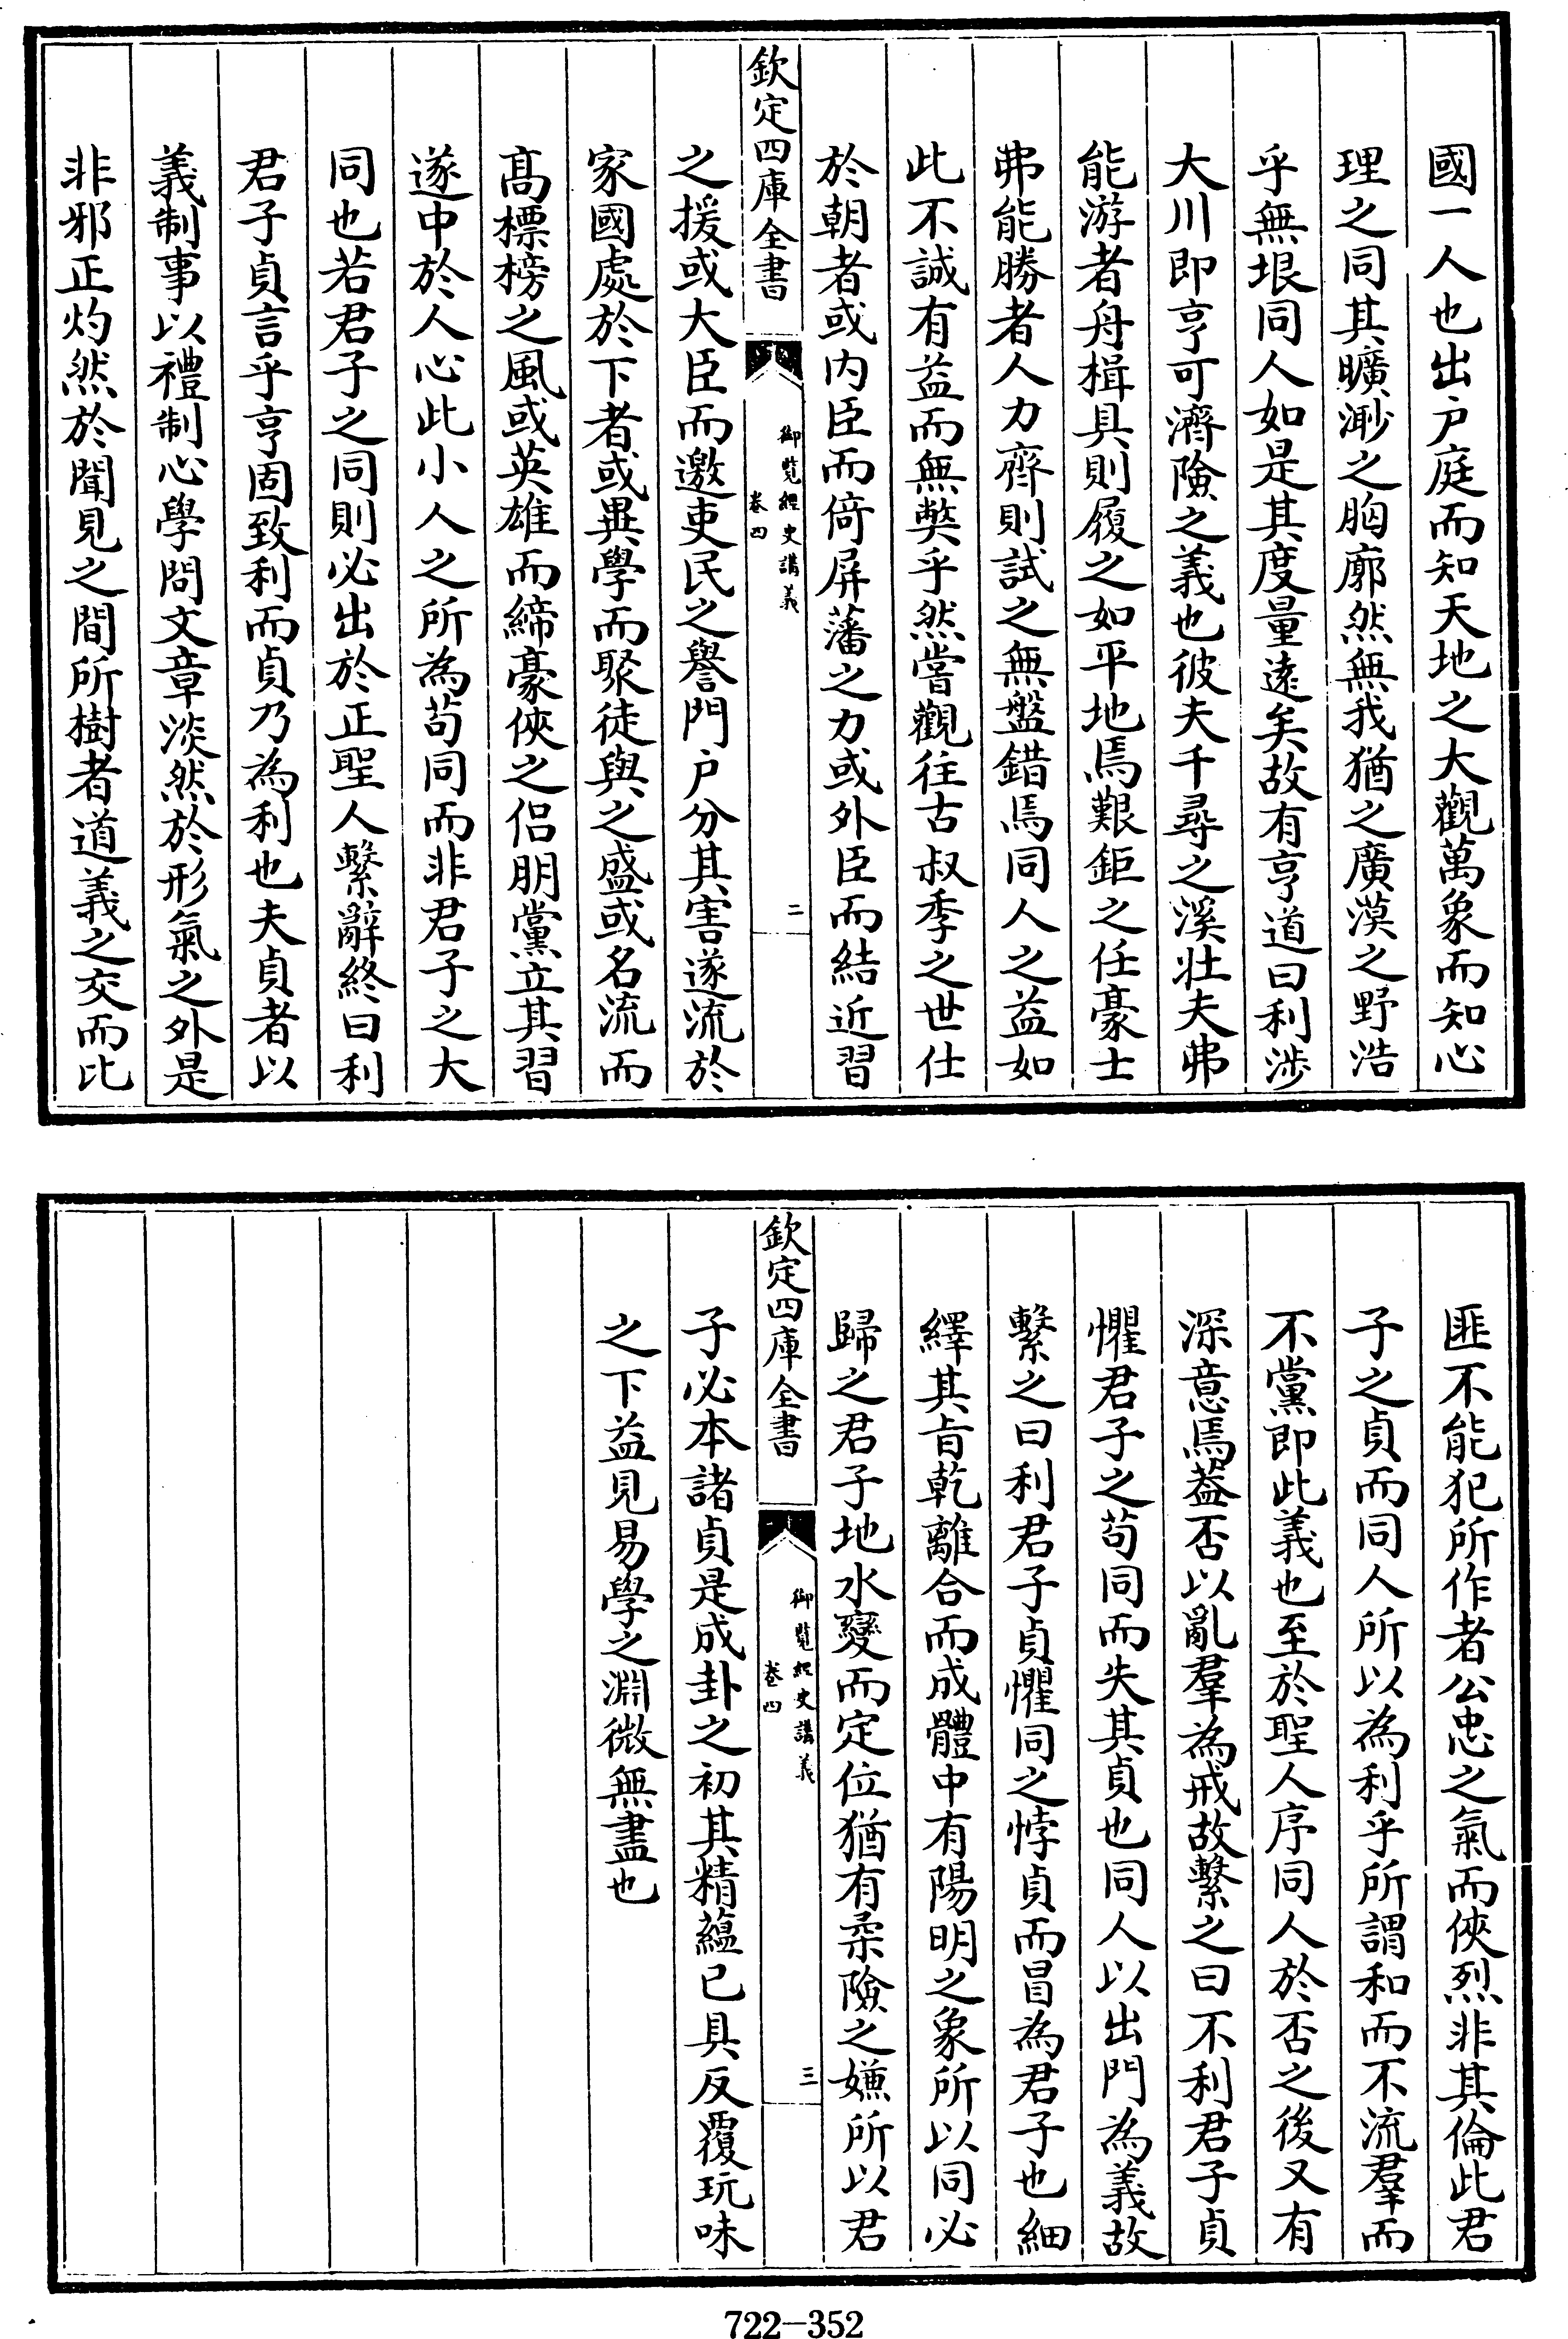 國一人也出户庭而知天地之大觀萬象而知心
理之同其曠渺之胸廓然無我猶之廣漠之野浩
乎無垠同人如是其度量遠矣故有亨道曰利涉
大川即亨可濟險之義也彼夫千尋之溪壯夫弗
能游者舟楫具則履之如平地焉艱鉅之任豪士
弗能勝者人力齊則試之無盤錯焉同人之益如
此不誠有益而無弊乎然嘗觀往古叔季之世仕
於朝者或内臣而倚屏藩之力或外臣而結近習
欽定四庫全書
御覽經史講義
卷四
二
之援或大臣而邀吏民之譽門户分其害遂流於
家國處於下者或異學而聚徒與之盛或名流而
髙標榜之風或英雄而締豪俠之侣朋黨立其習
遂中於人心此小人之所為茍同而非君子之大
同也若君子之同則必出於正聖人繫辭終曰利
君子貞言乎亨固致利而貞乃為利也夫貞者以
義制事以禮制心學問文章淡然於形氣之外是
非邪正灼然於聞見之間所樹者道義之交而比
匪不能犯所作者公忠之氣而俠烈非其倫此君
子之貞而同人所以為利乎所謂和而不流羣而
不黨即此義也至於聖人序同人於否之後又有
深意焉葢否以亂羣為戒故繫之曰不利君子貞
懼君子之茍同而失其貞也同人以出門為義故
繫之曰利君子貞懼同之悖貞而冒為君子也細
繹其旨乾離合而成體中有陽明之象所以同必
歸之君子地水變而定位猶有柔險之嫌所以君
欽定四庫全書
御覽經史講義
卷四
三
子必本諸貞是成卦之初其精蘊已具反覆玩味
之下益見易學之淵微無盡也
722-352